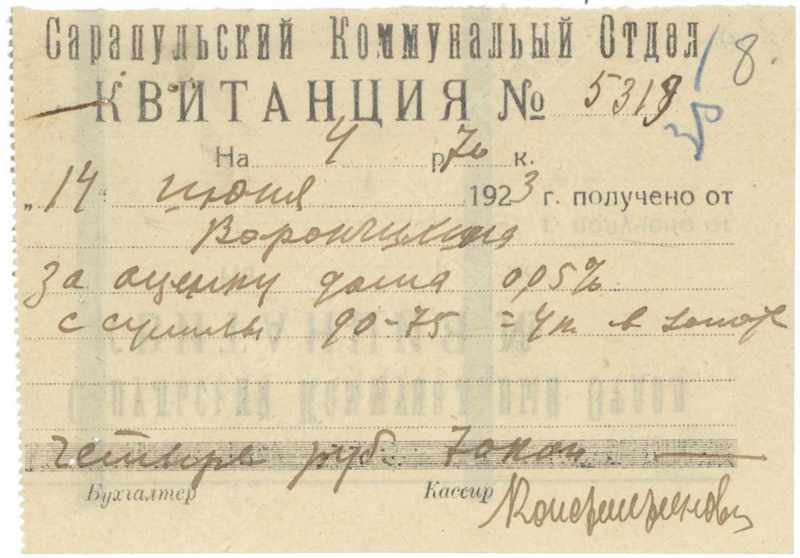 Сарапульский Коммунальный Отдел
КВИТАНЦИЯ № 5318
8.
На 4 р 70 к.
"14 июня 1923 г. получено от
за оценку дома 0,05%
с суммы 90-75 = 4 в
четыре руб. 70 коп
Бухгалтер Кассир